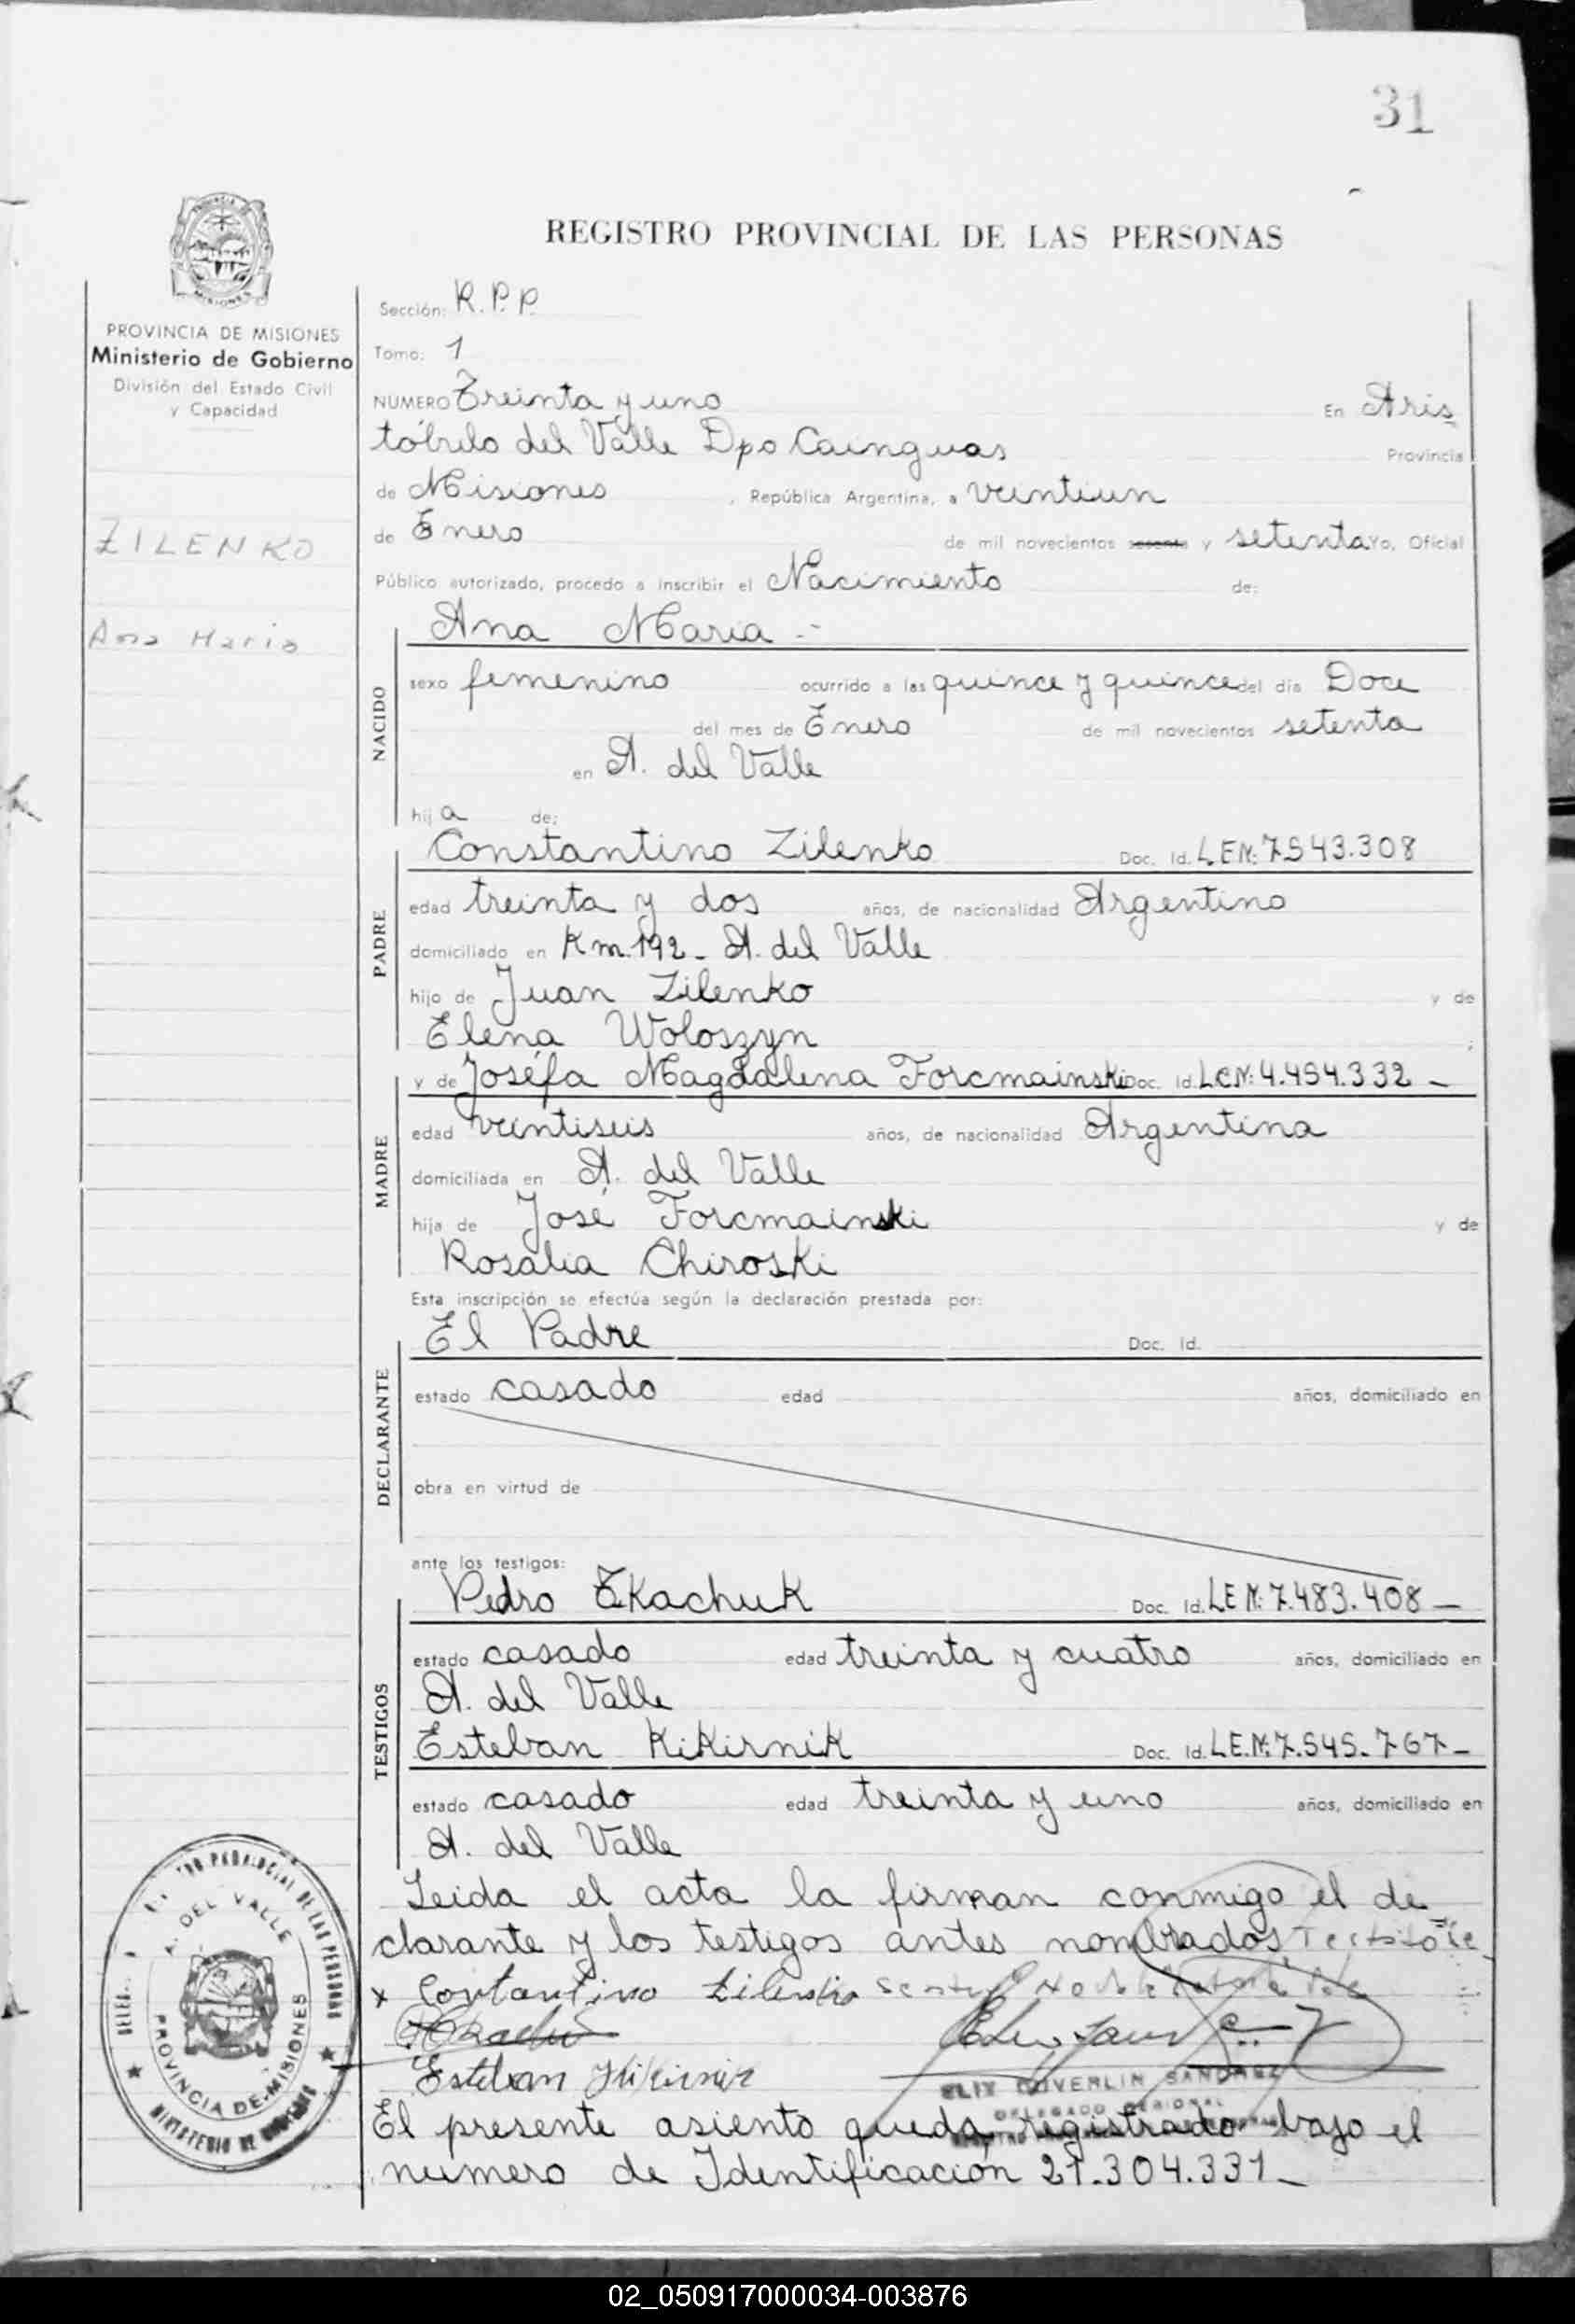 31
REGISTRO PROVINCIAL DE LAS PERSONAS
MISIONES
PROVINCIA DE MISIONES
Ministerio de Gobierno
División del Estado Civil
y Capacidad
ZILENKO
Ana Maria
Sección: R.P.P.
Tomo: 1
NUMERO Treinta y uno En Aris
tóbulo del Valle Dpo Cainguas Provincia
de Misiones, República Argentina, a veintiun
de Enero de mil novecientos sesenta y setenta Yo, Oficial
Público autorizado, procedo a inscribir el Nacimiento de:
NACIDO
Ana Maria -
sexo femenino ocurrido a las quince y quince del día Doce
del mes de Enero de mil novecientos setenta
en A. del Valle
hij a de:
PADRE
Constantino Zilenko Doc. Id. L.E.N: 7.543.308
edad treinta y dos años, de nacionalidad Argentino
domiciliado en Km. 192 - A. del Valle
hijo de Juan Zilenko y de
Elena Woloszyn ;
MADRE
y de Josefa Magdalena Forcmainski Doc. Id. L.C.N: 4.454.332 -
edad veintiseis años, de nacionalidad Argentina
domiciliada en A. del Valle
hija de José Forcmainski y de
Rosalia Chiroski
Esta inscripción se efectúa según la declaración prestada por:
DECLARANTE
El Padre Doc. Id.
estado casado edad años, domiciliado en
obra en virtud de
ante los testigos:
TESTIGOS
Pedro Tkachuk Doc. Id. L.E.N: 7.483.408 -
estado casado edad treinta y cuatro años, domiciliado en
A. del Valle
Esteban Kikirnik Doc. Id. L.E.N: 7.545.767 -
estado casado edad treinta y uno años, domiciliado en
A. del Valle
Leida el acta la firman conmigo el de
clarante y los testigos antes nombrados
x Contantino Zilenko
Esteban Kikirnik
SANCHEZ
DELEGADO REGIONAL
El presente asiento queda registrado bajo el
numero de Identificación 21.304.331 -
PROVINCIAL DE LAS PERSONAS
A. DEL VALLE
PROVINCIA DE MISIONES
MINISTERIO DE GOBIERNO
02_050917000034-003876